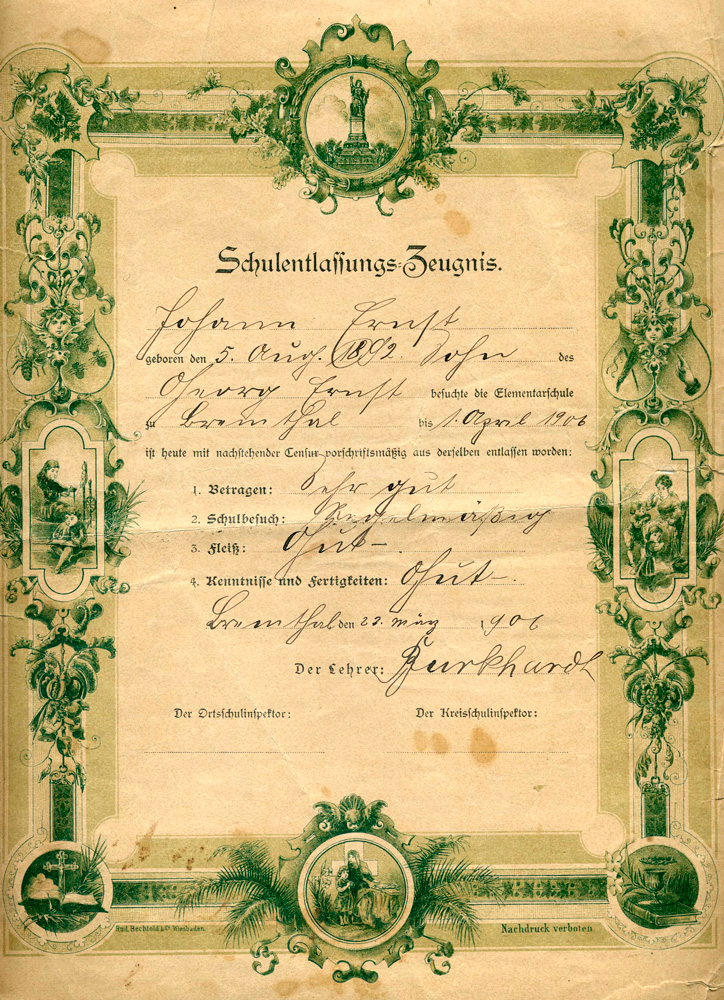 Schulentlassungs-Zeugnis.
Johann Ernst
geboren den 5. Aug. 1892. Sohn des
Georg Ernst besuchte die Elementarschule
zu Bremthal bis 1. April 1906
ist heute mit nachstehender Censur vorschriftsmäßig aus derselben entlassen worden:
1. Betragen: Sehr gut
2. Schulbesuch: Regelmäßig
3. Fleiß: Gut
4. Kenntnisse und Fertigkeiten: Gut
Bremthal den 23. März 1906
Der Lehrer: Burkhardt
Der Ortsschulinspektor: Der Kreisschulinspektor:
Rud. Bechtold & Co. Wiesbaden. Nachdruck verboten